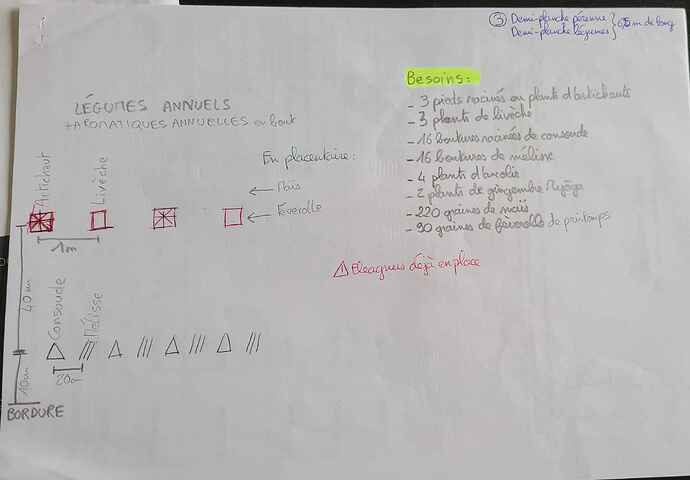 ③ Demi-planche pérenne
Demi-planche légumes } 6,5m de long
Besoins:
LÉGUMES ANNUELS
+ AROMATIQUES ANNUELLES au bout
- 3 pieds racinés ou plants d'artichauts
- 3 plants de livèche
- 16 boutures racinées de consoude
- 16 boutures de mélisse
- 4 plants d'arolie
- 2 plants de gingembre Myōga
- 220 graines de maïs
- 90 graines de féverolle de printemps
En placentaire:
← Maïs
← Féverolle
Artichaut
Livèche
1m
⚠ Eleagnus déjà en place
40cm
Consoude
Mélisse
20cm
10cm
BORDURE